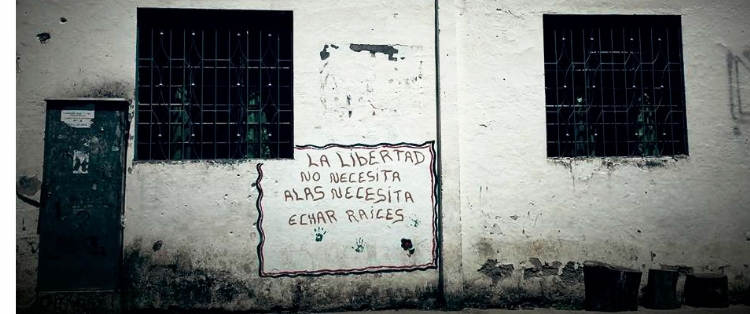 LA LIBERTAD
NO NECESITA
ALAS NECESITA
ECHAR RAÍCES